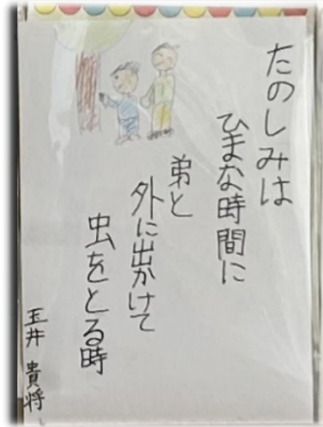 たのしみは
ひまな時間に
弟と
外に出かけて
虫をとる時
玉井 貴将